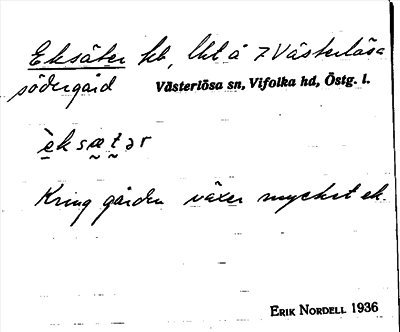 Eksäter hb, lht å 7 Västerlösa
södergård Västerlösa sn, Vifolka hd, Östg. l.
è̱k sæ̰t̰ər
Kring gården växer mycket ek.
ERIK NORDELL 1936